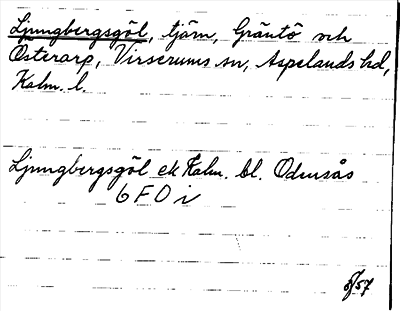 Ljungbergsgöl, tjärn, Gräntö och
Österarp, Virserums sn, Aspelands hd,
Kalm. l.
Ljungbergsgöl ek Kalm. bl. Odensås
6 F 0 i
8/57